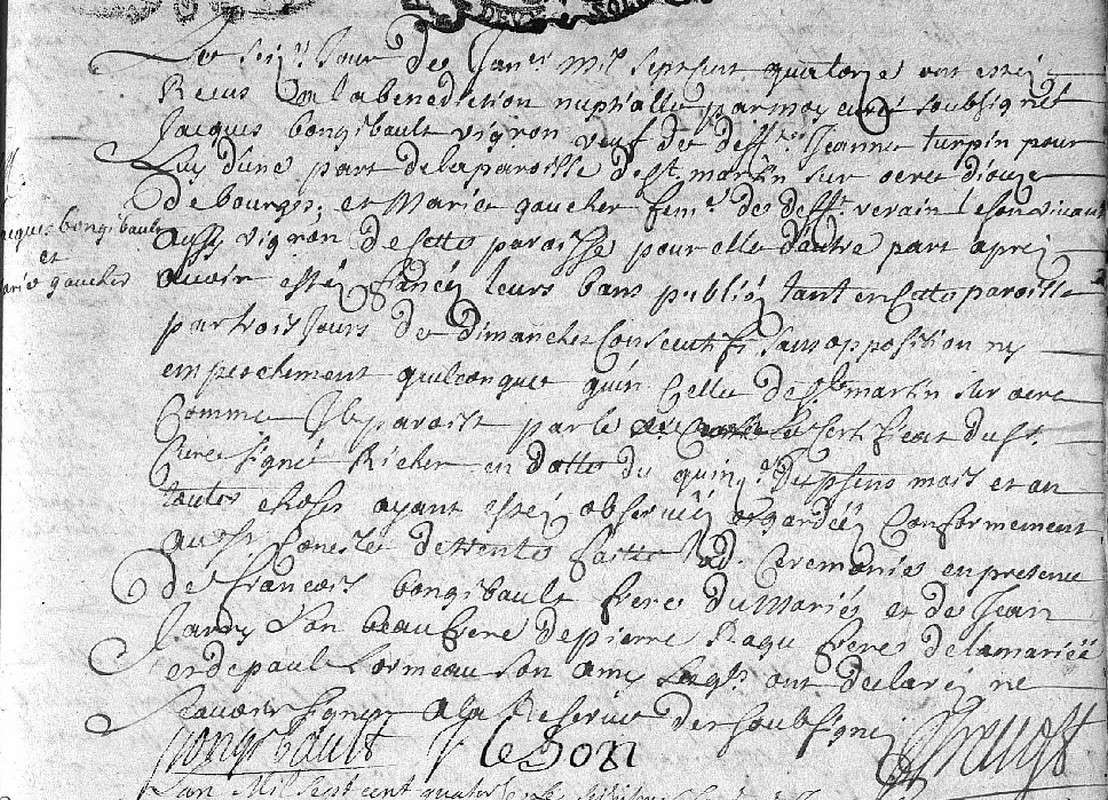 DEUX SOLS
Le seize Jour de Janer mil sept cent quatorze ont estéz
Receus En la benediction nuptialle par moy curé soubsigné
Jacques bongibault vigron veuf de deffte Jeanne turpin pour
Luy d'une part de la paroisse de st. martin sur ocre dioceze
De bourges; et Marie gaucher feme. de defft. verain
Jacques bongibault
et
marie gaucher
aussy vigron de cette paroisse pour elle d'autre part apréz
avoir estéz fiancéz leurs bans publiéz tant en cette paroisse
par trois Jours de dimanches consecutifs sans opposition ny
empeschement quelconques qu'en celle de st. martin sur ocre
Comme Il paroist par le certificat du sr.
Curé signé Richer en datte du quinze. du pnt mois et an
touttes choses ayant estéz observéez et gardéez Conformement
aux st. faitte lad. Ceremonie en presence
De francois bongibault frere du Marié et de Jean
Jarry son beaufrere de pierre Ragu frere de la mariée
et de paul Lormeau son amy Lesqls. ont declaréz ne
scavoir signer a la Reserve des soubsignéz
bongibault leson
L'an Mil Sept cent quatorze